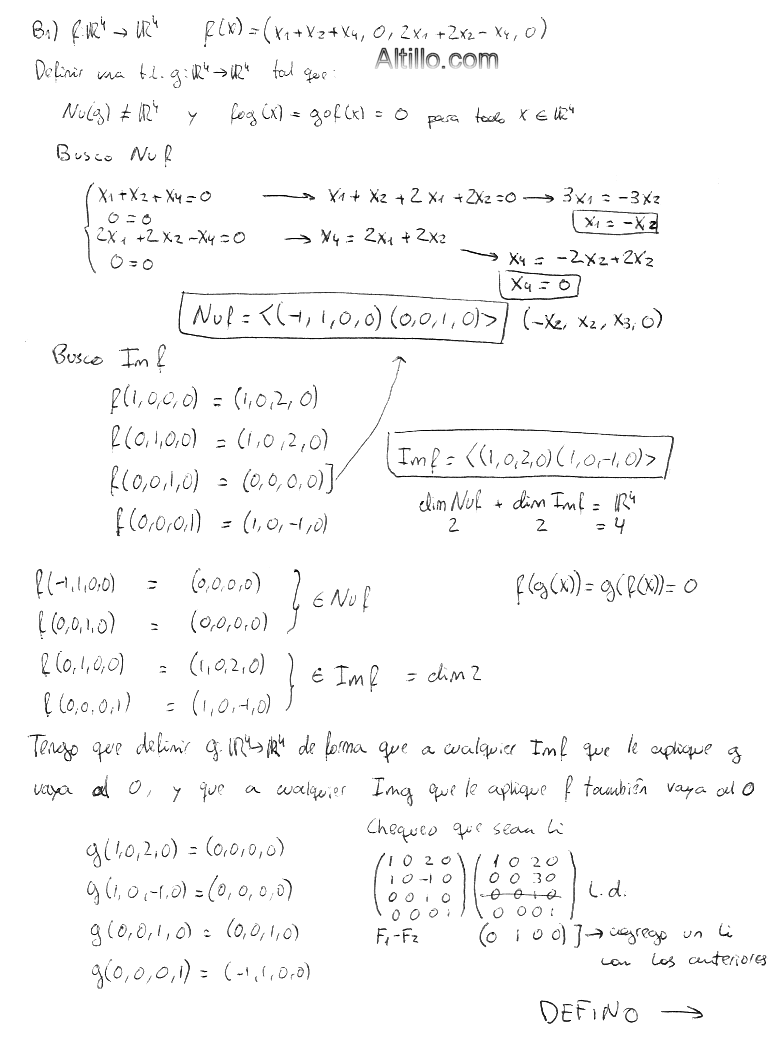 B1) f:ℝ⁴ → ℝ⁴ f(x) = (x₁+x₂+x₄, 0, 2x₁+2x₂-x₄, 0)
Altillo.com
Definir una t.l. g:ℝ⁴→ℝ⁴ tal que:
Nu(g) ≠ ℝ⁴ y fog(x) = gof(x) = 0 para todo x ∈ ℝ⁴
Busco Nu f
x₁+x₂+x₄=0 → x₁+x₂+2x₁+2x₂=0 → 3x₁ = -3x₂
0=0 x₁ = -x₂
2x₁+2x₂-x₄=0 → x₄ = 2x₁+2x₂ → x₄ = -2x₂+2x₂
0=0 x₄ = 0
Nu f = <(-1,1,0,0)(0,0,1,0)> (-x₂, x₂, x₃, 0)
Busco Im f
f(1,0,0,0) = (1,0,2,0)
f(0,1,0,0) = (1,0,2,0)
f(0,0,1,0) = (0,0,0,0)]
f(0,0,0,1) = (1,0,-1,0)
Im f = <(1,0,2,0)(1,0,-1,0)>
dim Nu f + dim Im f = ℝ⁴
2 2 = 4
f(-1,1,0,0) = (0,0,0,0)
f(0,0,1,0) = (0,0,0,0) } ∈ Nu f
f(g(x)) = g(f(x)) = 0
f(0,1,0,0) = (1,0,2,0)
f(0,0,0,1) = (1,0,-1,0) } ∈ Im f = dim 2
Tengo que definir g:ℝ⁴→ℝ⁴ de forma que a cualquier Im f que le aplique g
vaya al 0, y que a cualquier Im g que le aplique f también vaya al 0
g(1,0,2,0) = (0,0,0,0)
g(1,0,-1,0) = (0,0,0,0)
g(0,0,1,0) = (0,0,1,0)
g(0,0,0,1) = (-1,1,0,0)
Chequeo que sean li
1 0 2 0 1 0 2 0
1 0 -1 0 0 0 3 0
0 0 1 0 0 0 1 0 L.d.
0 0 0 1 0 0 0 1
F₁-F₂ (0 1 0 0)] → agrego un li
con los anteriores
DEFINO →